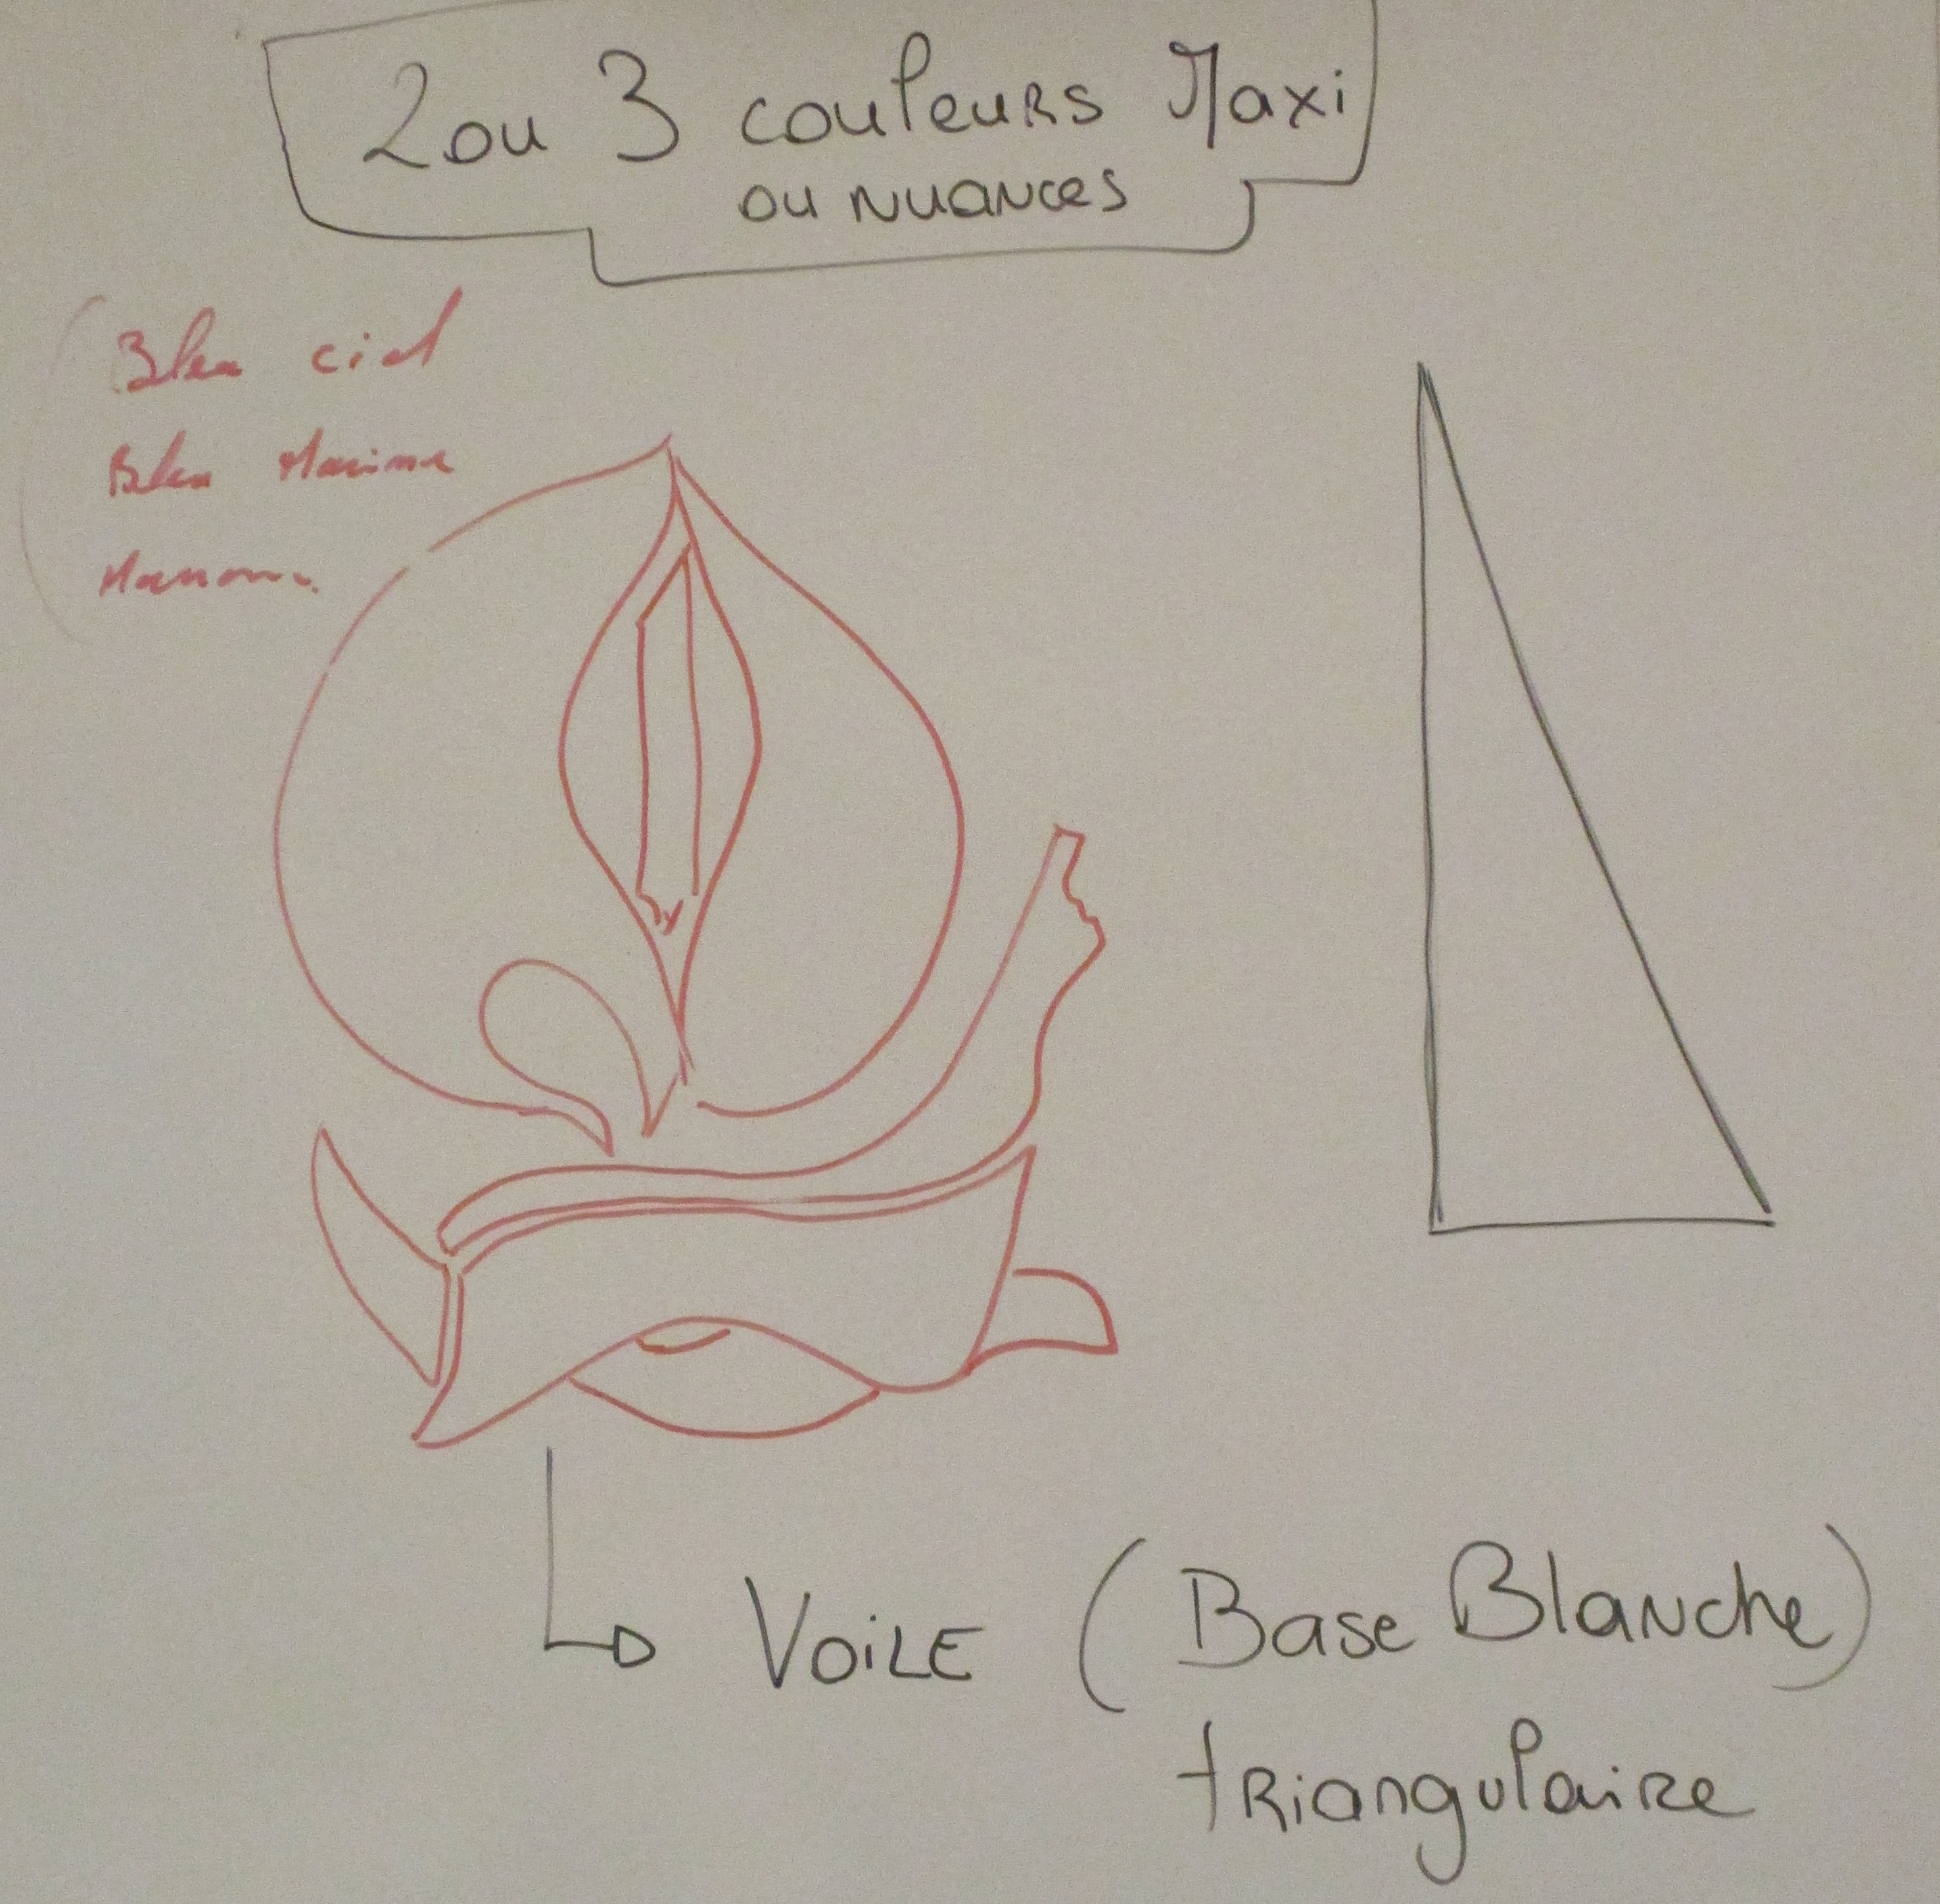 2 ou 3 couleurs Maxi
ou nuances
Bleu ciel
Bleu Marine
Marron
VOiLE (Base Blanche)
triangulaire